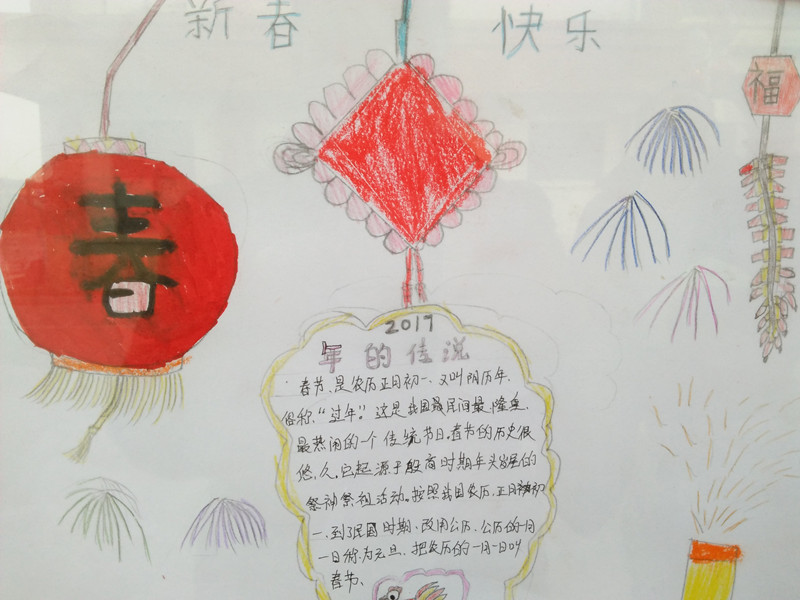 新春 快乐
福
春
2017
年的传说
春节、是农历正月初一、又叫阴历年、
俗称、“过年”。这是我国最民间最隆重、
最热闹的一个传统节日。春节的历史很
悠、久。它起源于殷商时期年头岁尾的
祭神祭祖活动。按照我国农历、正月初
一、到了民国时期、改用公历、公历的一月
一日称、为元旦、把农历的一月一日叫
春节、